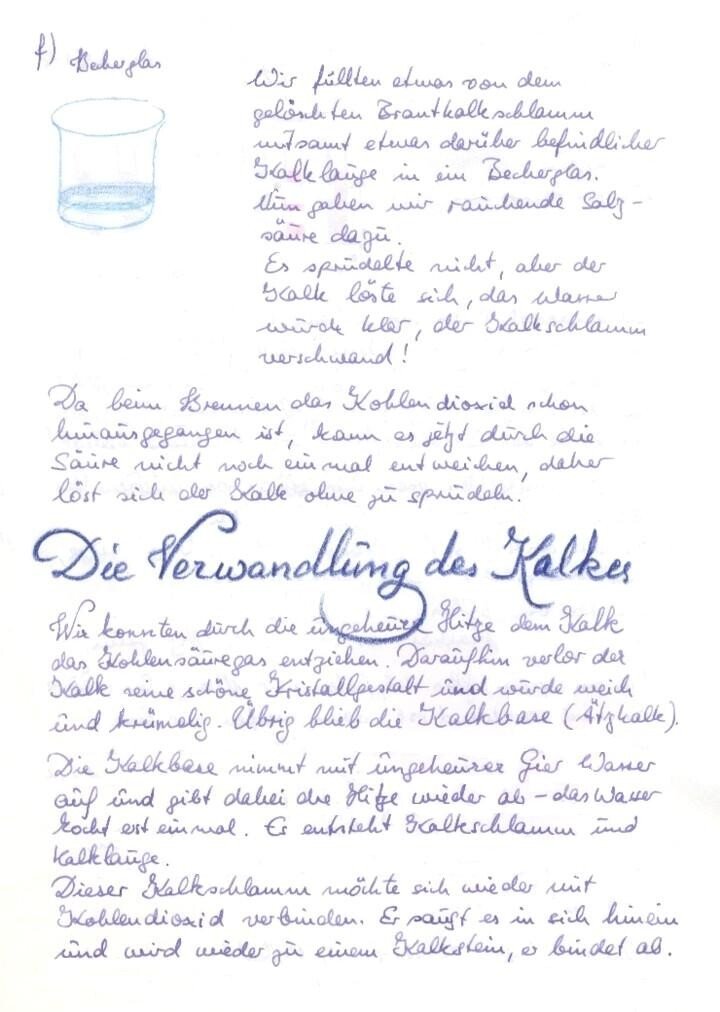 f) Becherglas
Wir füllten etwas von dem
gelöschten Branntkalkschlamm
mitsamt etwas darüber befindlicher
Kalklauge in ein Becherglas.
Nun gaben wir rauchende Salz-
säure dazu.
Es sprudelte nicht, aber der
Kalk löste sich, das Wasser
wurde klar, der Kalkschlamm
verschwand!
Da beim Brennen das Kohlendioxid schon
hinausgegangen ist, kann es jetzt durch die
Säure nicht noch einmal entweichen, daher
löst sich der Kalk ohne zu sprudeln.
Die Verwandlung des Kalkes
Wir konnten durch die ungeheure Hitze dem Kalk
das Kohlensäuregas entziehen. Daraufhin verlor der
Kalk seine schöne Kristallgestalt und wurde weich
und krümelig. Übrig blieb die Kalkbase (Ätzkalk).
Die Kalkbase nimmt mit ungeheurer Gier Wasser
auf und gibt dabei die Hitze wieder ab - das Wasser
kocht erst einmal. Es entsteht Kalkschlamm und
Kalklauge.
Dieser Kalkschlamm möchte sich wieder mit
Kohlendioxid verbinden. Er saugt es in sich hinein
und wird wieder zu einem Kalkstein, er bindet ab.